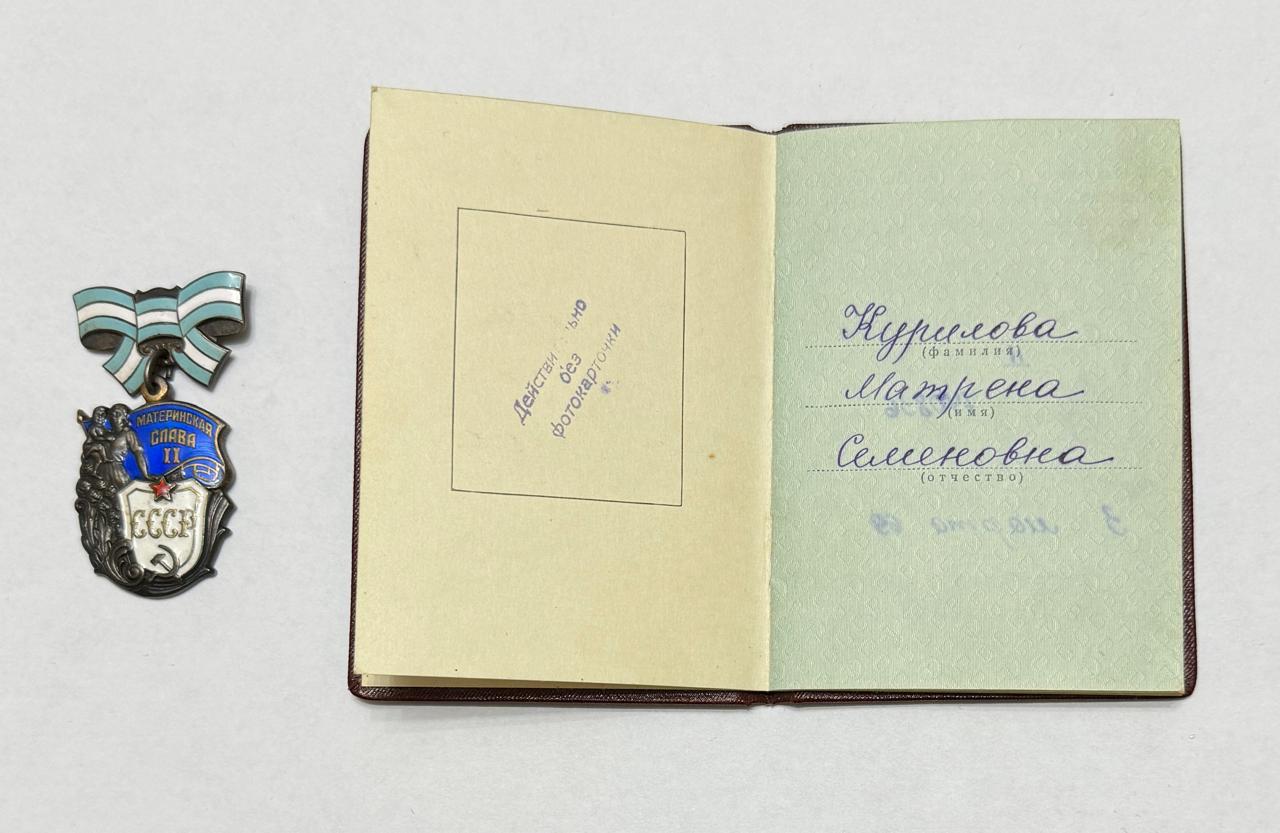 МАТЕРИНСКАЯ
СЛАВА
II
СССР
Действи льно
без
фотокарточки
Курилова
(фамилия)
Матрена
(имя)
Семеновна
(отчество)
3 марта 69